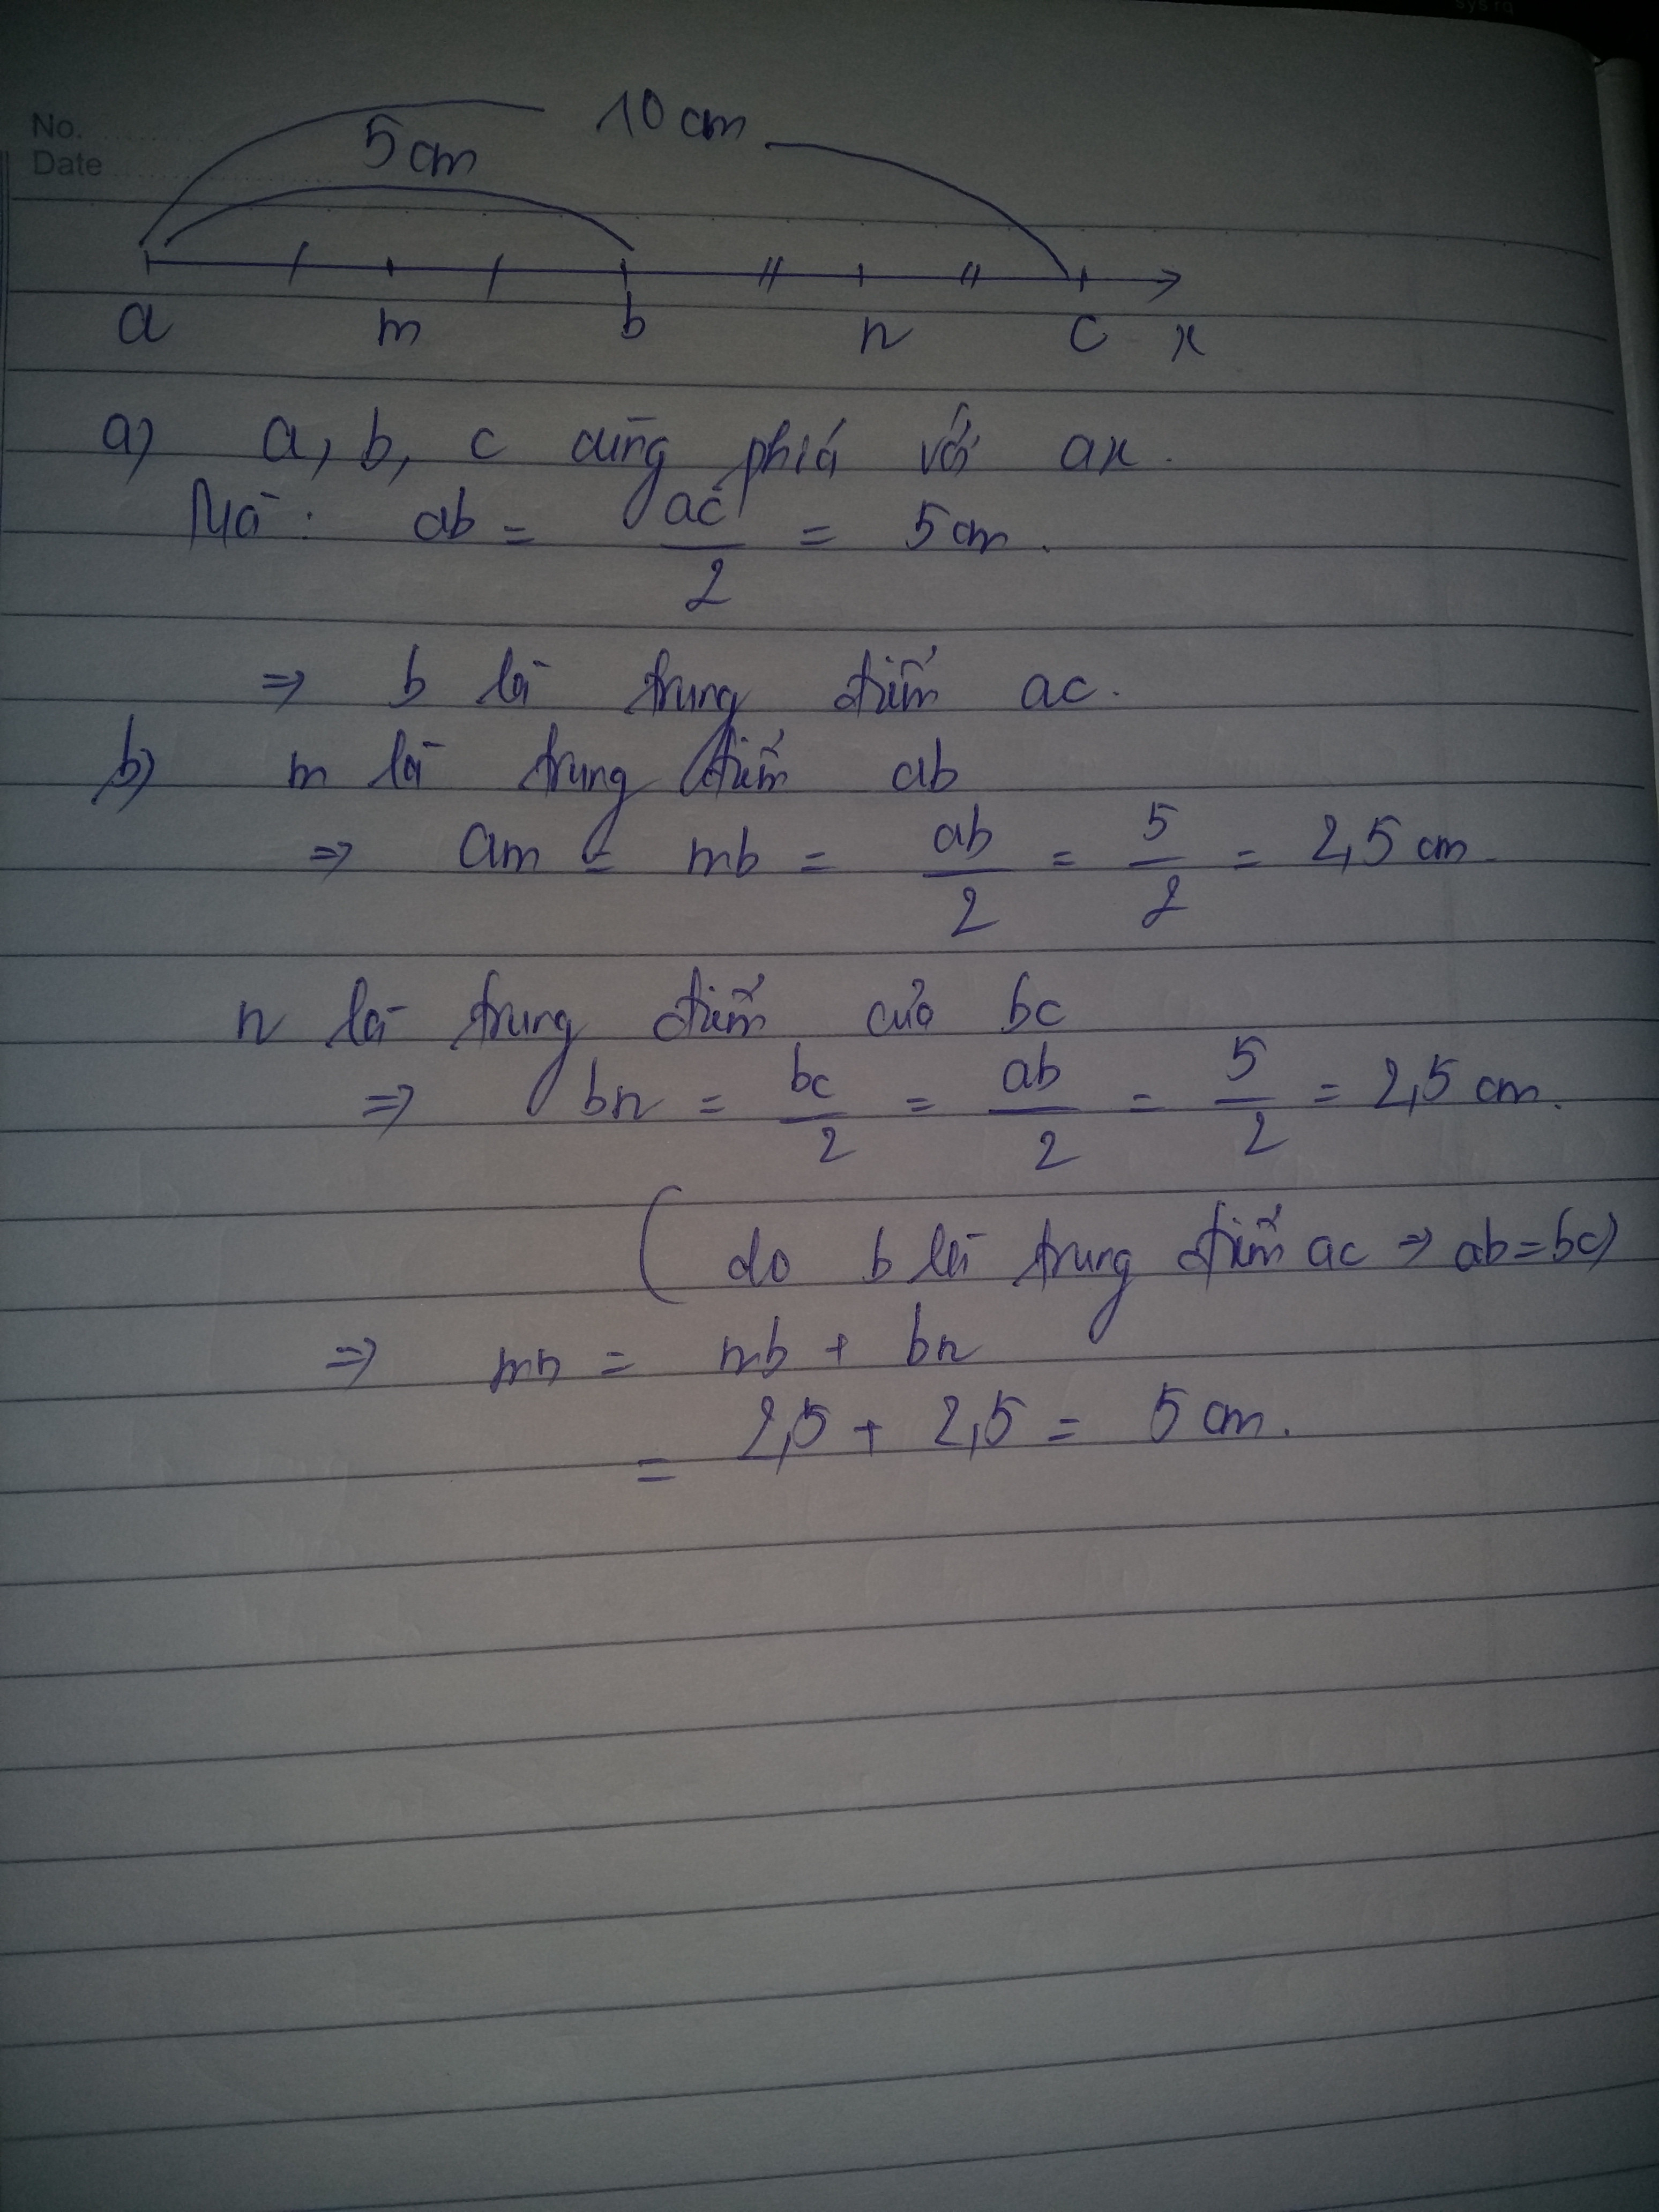 sys rq
No.
Date
10 cm
5 cm
a m b n c x
a) a, b, c cùng phiá với ax.
Mà : ab = ac/2 = 5 cm.
⇒ b là trung điểm ac.
b) m là trung điểm ab
⇒ am = mb = ab/2 = 5/2 = 2,5 cm
n là trung điểm của bc
⇒ bn = bc/2 = ab/2 = 5/2 = 2,5 cm.
( do b là trung điểm ac ⇒ ab = bc)
⇒ mn = mb + bn
= 2,5 + 2,5 = 5 cm.